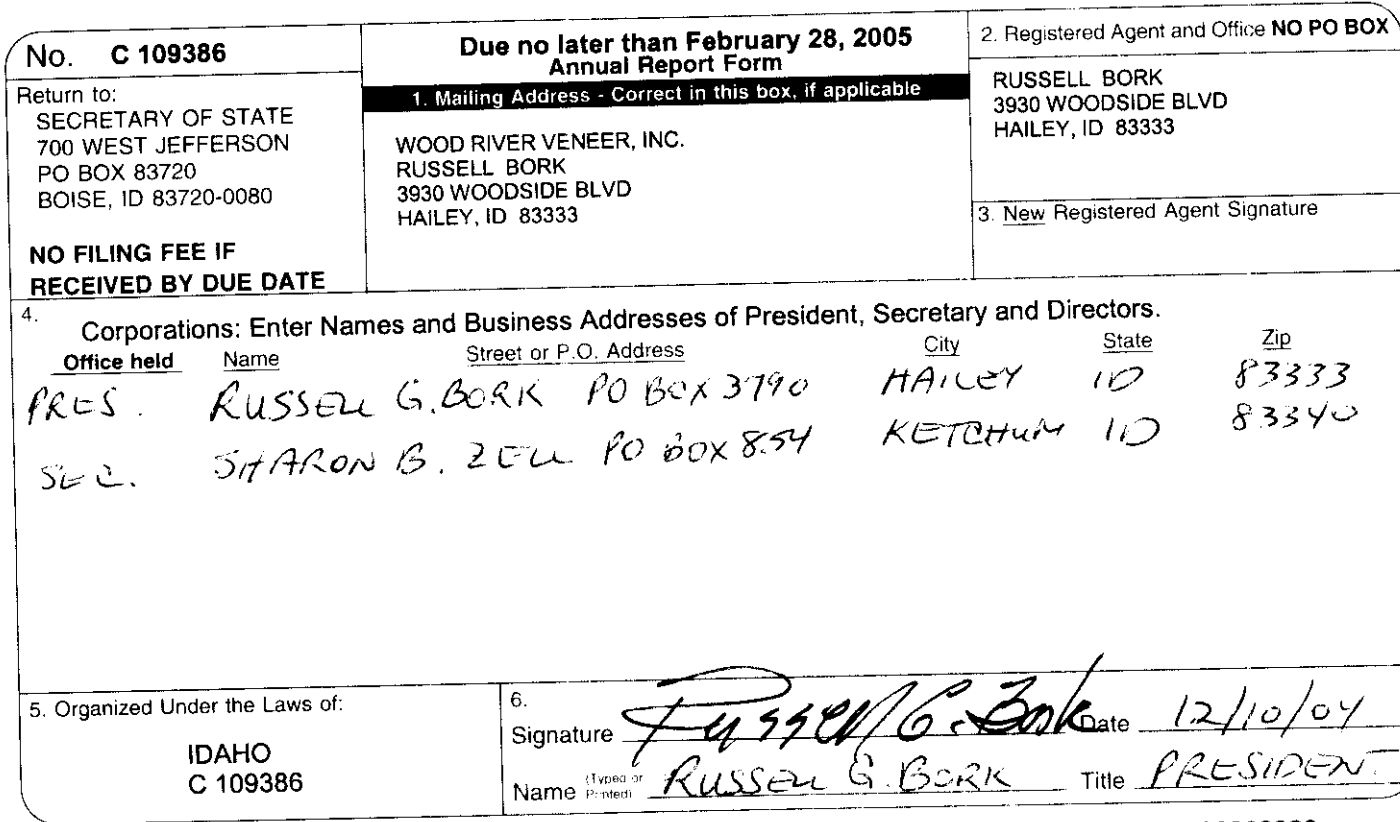 No. C 109386
Return to:
SECRETARY OF STATE
700 WEST JEFFERSON
PO BOX 83720
BOISE, ID 83720-0080
NO FILING FEE IF
RECEIVED BY DUE DATE
Due no later than February 28, 2005
Annual Report Form
1. Mailing Address - Correct in this box, if applicable
WOOD RIVER VENEER, INC.
RUSSELL BORK
3930 WOODSIDE BLVD
HAILEY, ID 83333
2. Registered Agent and Office NO PO BOX
RUSSELL BORK
3930 WOODSIDE BLVD
HAILEY, ID 83333
3. New Registered Agent Signature
4. Corporations: Enter Names and Business Addresses of President, Secretary and Directors.
Office held Name Street or P.O. Address City State Zip
PRES. RUSSELL G. BORK PO BOX 3790 HAILEY ID 83333
SEC. SHARON B. ZELL PO BOX 854 KETCHUM ID 83340
5. Organized Under the Laws of:
IDAHO
C 109386
6.
Signature Russell G. Bork Date 12/10/04
Name (Typed or Printed) RUSSELL G. BORK Title PRESIDENT